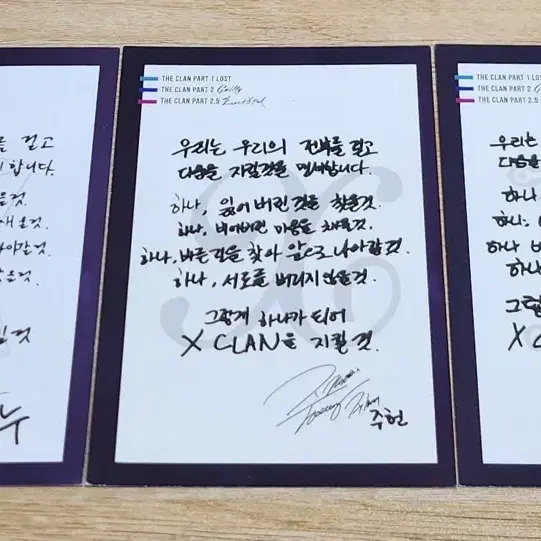 를 걸고
합니다.
을것.
새 울것.
나아갈것.
않을것.
킬것
누
THE CLAN PART 1 LOST
THE CLAN PART 2 Guilty
THE CLAN PART 2.5 Beautiful
우리는 우리의 전부를 걸고
다음을 지킬것을 맹세합니다.
하나, 잃어버린 것을 찾을것.
하나, 비어버린 마음을 채울것.
하나, 바른길을 찾아 앞으로 나아갈 것.
하나, 서로를 버리지 않을것.
그렇게 하나가 되어
X CLAN을 지킬 것.
주헌
THE CLAN PART 1 LOST
THE CLAN PART 2 G
THE CLAN PART 2.5
우리는
다음을
하나
하나,
하나 바
하나
그렇
X C